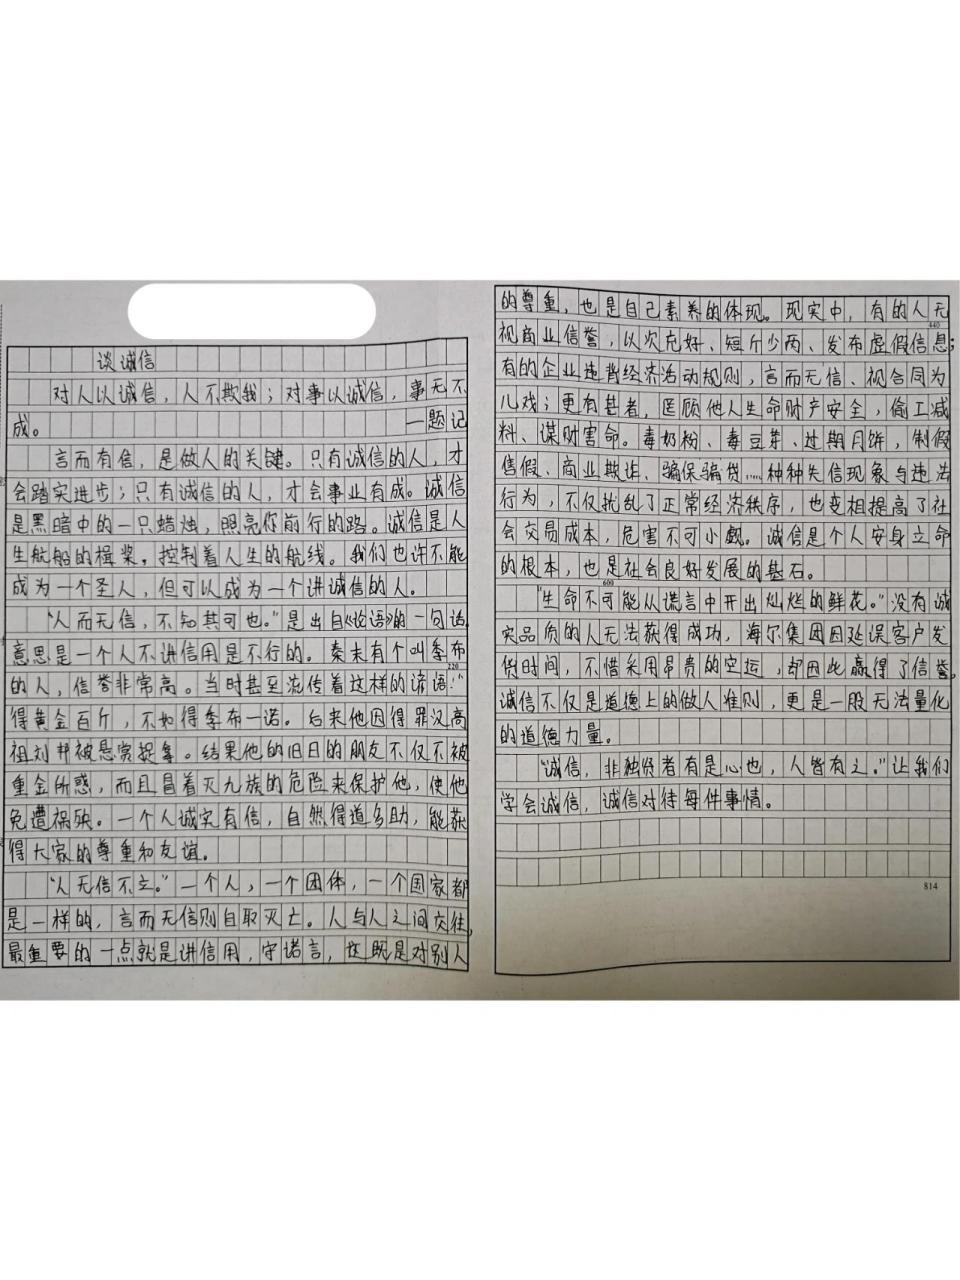 谈诚信
对人以诚信，人不欺我；对事以诚信，事无不
成。 —题记
言而有信，是做人的关键。只有诚信的人，才
会踏实进步；只有诚信的人，才会事业有成。诚信
是黑暗中的一只蜡烛，照亮你前行的路。诚信是人
生航船的楫桨，控制着人生的航线。我们也许不能
成为一个圣人，但可以成为一个讲诚信的人。
“人而无信，不知其可也。”是出自《论语》的一句话，
意思是一个人不讲信用是不行的。秦末有个叫季布
的人，信誉非常高。当时甚至流传着这样的谚语：“
得黄金百斤，不如得季布一诺。后来他因得罪汉高
祖刘邦被悬赏捉拿。结果他的旧日的朋友不仅不被
重金所惑，而且冒着灭九族的危险来保护他，使他
免遭祸殃。一个人诚实有信，自然得道多助，能获
得大家的尊重和友谊。
“人无信不立。”一个人，一个团体，一个国家都
是一样的，言而无信则自取灭亡。人与人之间交往，
最重要的一点就是讲信用，守诺言，这既是对别人
的尊重，也是自己素养的体现。现实中，有的人无
视商业信誉，以次充好、短斤少两、发布虚假信息；
有的企业违背经济活动规则，言而无信、视合同为
儿戏；更有甚者，罔顾他人生命财产安全，偷工减
料、谋财害命。毒奶粉、毒豆芽、过期月饼，制假
售假、商业欺诈、骗保骗贷……种种失信现象与违法
行为，不仅扰乱了正常经济秩序，也变相提高了社
会交易成本，危害不可小觑。诚信是个人安身立命
的根本，也是社会良好发展的基石。
“生命不可能从谎言中开出灿烂的鲜花。”没有诚
实品质的人无法获得成功，海尔集团因延误客户发
货时间，不惜采用昂贵的空运，却因此赢得了信誉，
诚信不仅是道德上的做人准则，更是一股无法量化
的道德力量。
“诚信，非独贤者有是心也，人皆有之。”让我们
学会诚信，诚信对待每件事情。
220
440
600
814